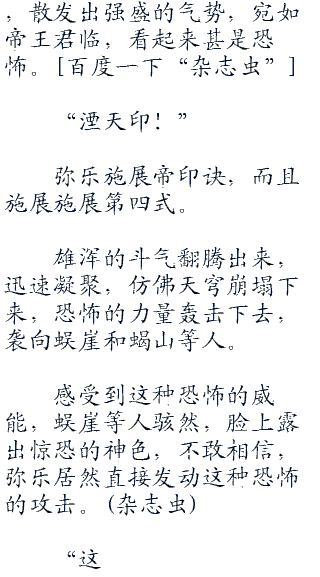 ，散发出强盛的气势，宛如
帝王君临，看起来甚是恐
怖。[百度一下“杂志虫”]
“湮天印！”
弥乐施展帝印诀，而且
施展施展第四式。
雄浑的斗气翻腾出来，
迅速凝聚，仿佛天穹崩塌下
来，恐怖的力量轰击下去，
袭向蜈崖和蝎山等人。
感受到这种恐怖的威
能，蜈崖等人骇然，脸上露
出惊恐的神色，不敢相信，
弥乐居然直接发动这种恐怖
的攻击。(杂志虫)
“这